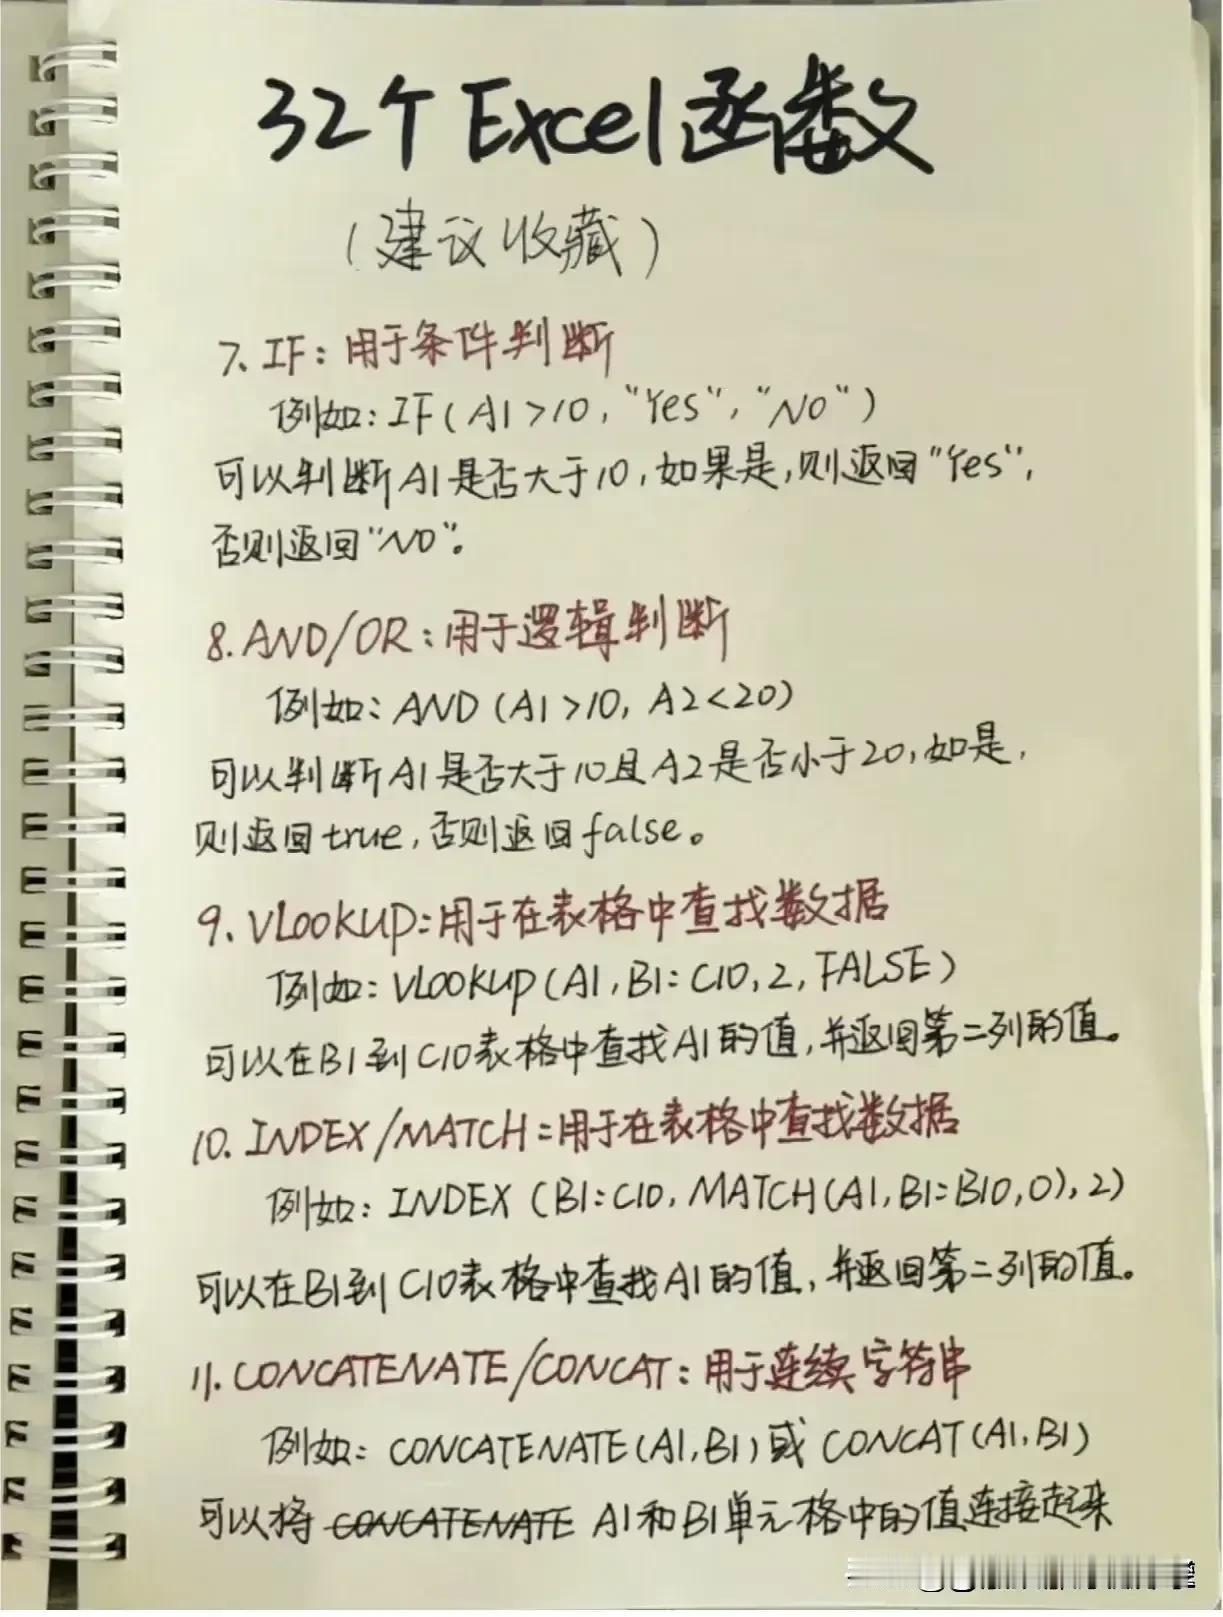 32个Excel函数
（建议收藏）
7、IF：用于条件判断
例如：IF(A1>10,"Yes","NO")
可以判断A1是否大于10,如果是,则返回"Yes",
否则返回"NO"。
8.AND/OR：用于逻辑判断
例如：AND(A1>10, A2<20)
可以判断A1是否大于10且A2是否小于20,如是,
则返回true,否则返回false。
9.VLOOKUP:用于在表格中查找数据
例如：VLOOKUP(A1,B1:C10,2,FALSE)
可以在B1到C10表格中查找A1的值,并返回第二列的值。
10.INDEX/MATCH:用于在表格中查找数据
例如：INDEX(B1:C10,MATCH(A1,B1:B10,0),2)
可以在B1到C10表格中查找A1的值,并返回第二列的值。
11.CONCATENATE/CONCAT：用于连续字符串
例如：CONCATENATE(A1,B1)或CONCAT(A1,B1)
可以将 CONCATENATE A1和B1单元格中的值连接起来